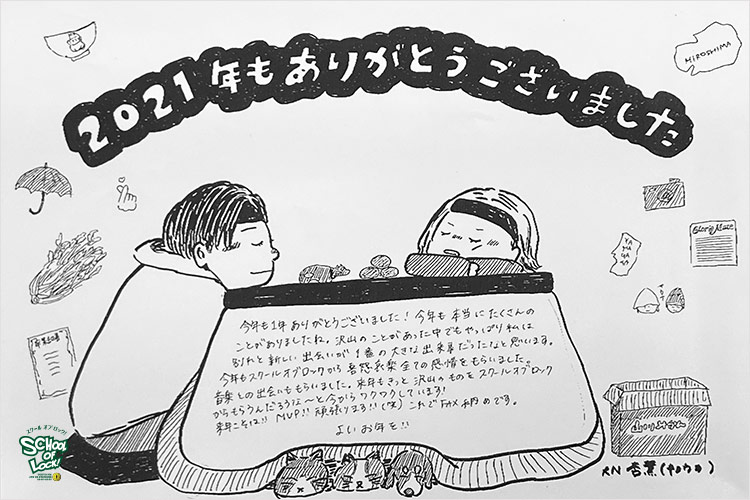 2021年もありがとうございました
HIROSHIMA
今年も1年ありがとうございました！今年も本当にたくさんの
ことがありましたね。沢山のことがあった中でもやっぱり私は
別れと新しい出会いが1番の大きな出来事だったなと思います。
今年もスクールオブロックから喜怒哀楽全ての感情をもらいました。
音楽との出会いももらいました。来年もきっと沢山のものをスクールオブロック
からもらうんだろうな〜と今からワクワクしています！
来年こそは!! MVP!! 頑張ります!!(笑) これでFAX納めです。
よいお年を!!
卒業証書
YAMAGATA
山川みかん
RN 杏薫(キョウカ)
スクールオブロック!
SCHOOL
OF
LOCK!